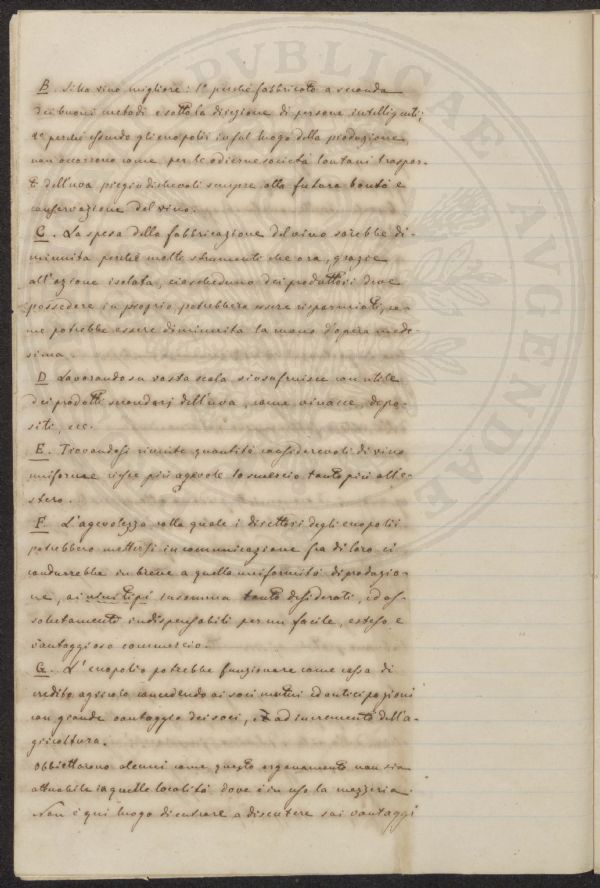 B. Si ha vino migliore: 1º perchè fabbricato a seconda
dei buoni metodi e sotto la direzione di persone intelligenti;
2º perchè essendo gli enopolii in sul luogo della produzione,
non occorrono come per le odierne società lontani traspor-
ti dell'uva pregiudichevoli sempre alla futura bontà e
conservazione del vino.
C. La spesa della fabbricazione del vino sarebbe di-
minuita perchè molti strumenti che ora, grazie
all'azione isolata, ciascheduno dei produttori deve
possedere in proprio potrebbero essere risparmiati, co-
me potrebbe essere diminuita la mano d'opera mede-
sima.
D Lavorando su vasta scala si usufruisce con utile
dei prodotti secondarj dell'uva, come vinacce, depo-
siti, ecc.
E. Trovandosi riunite quantità considerevoli di vino
uniforme riesce più agevole lo smercio tanto più all'e-
stero.
F. L'agevolezza colla quale i direttori degli enopolii
potrebbero mettersi in comunicazione fra di loro ci
condurrebbe in breve a quella uniformità di produzio-
ne, ai vini tipi insomma tanto desiderati, ed as-
solutamenti indispensabili per un facile, esteso e
vantaggioso commercio.
G. L'enopolio potrebbe funzionare come cassa di
credito agricolo concedendo ai soci mutui ed anticipazioni
con grande vantaggio dei soci, ed ad incremento dell'a-
gricoltura.
Obbiettarono alcuni come questo organamento non sia
attuabile in quelle località dove è in uso la mezzeria.
Non è qui luogo di entrare a discutere sui vantaggi
PVBLICAE AVGENDAE